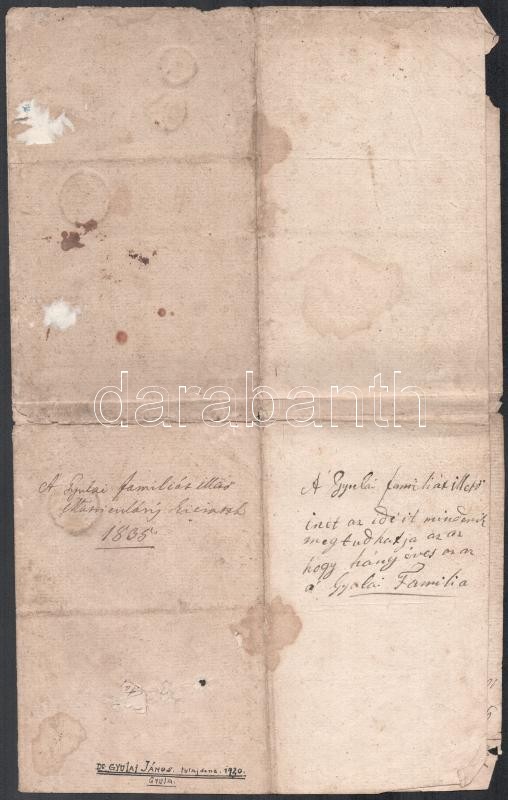 A Gyulai familiát illető
1835
A Gyulai familiát illető
inet az idő it mindenik
meg tudhatja az az
hogy hány éves az az
a Gyulai Familia
darabanth
Dr GYULAI JÁNOS. tulajdona. 1920.
Gyula.